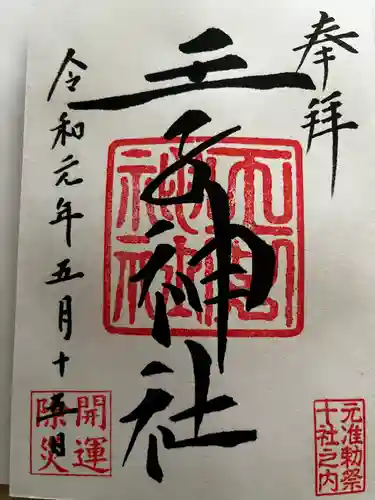 奉拝
元准勅祭
十社之内
王子神社
令和元年五月十五日
開運
除災